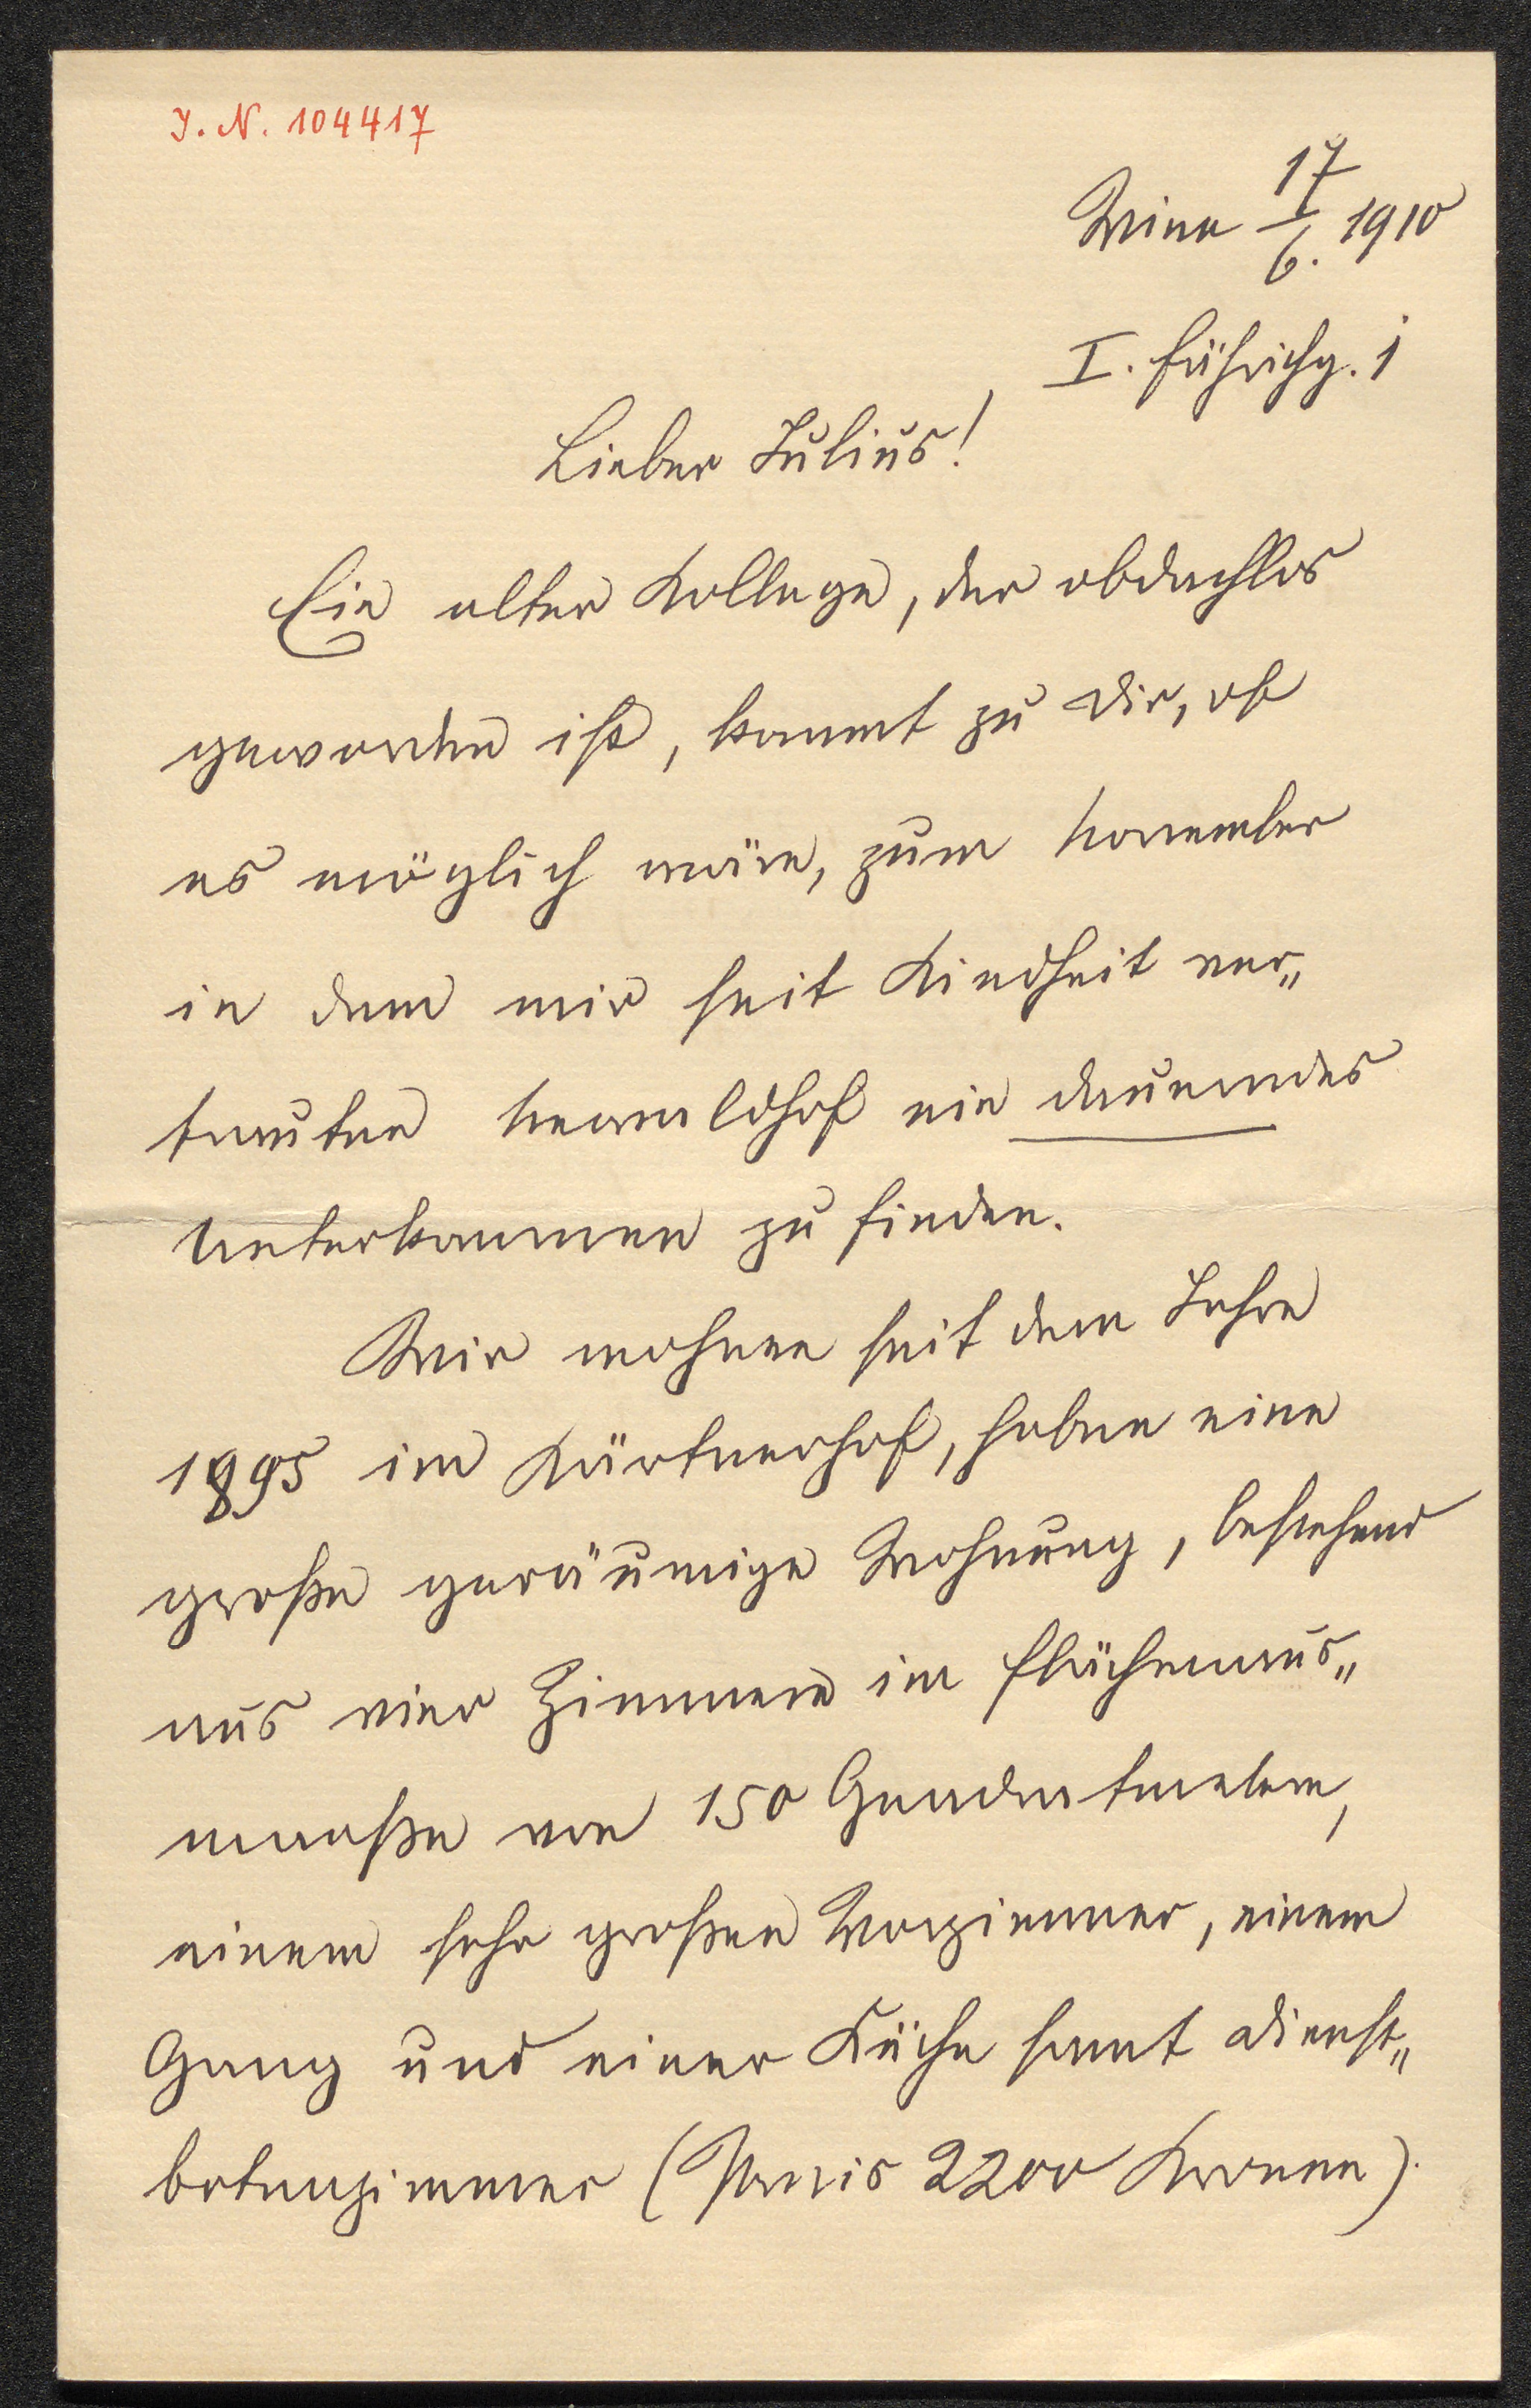 J. N. 104417
Wien 17/6. 1910
I. Führichg. 1
Lieber Julius!
Ein alter Kollege, der obdachlos
geworden ist, kommt zu Dir, ob
es möglich wäre, zum November
in dem mir seit Kindheit ver„
trauten Neuwaldhof ein dauerndes
Unterkommen zu finden.
Wir wohnen seit dem Jahre
1895 im Kärtnerhof, haben eine
große geräumige Wohnung, bestehend
aus vier Zimmern im Flächenaus„
maaße von 150 Quadratmetern,
einem sehr großen Vorzimmer, einem
Gang und einer Küche samt Dienst„
botenzimmer (Preis 2200 Kronen).